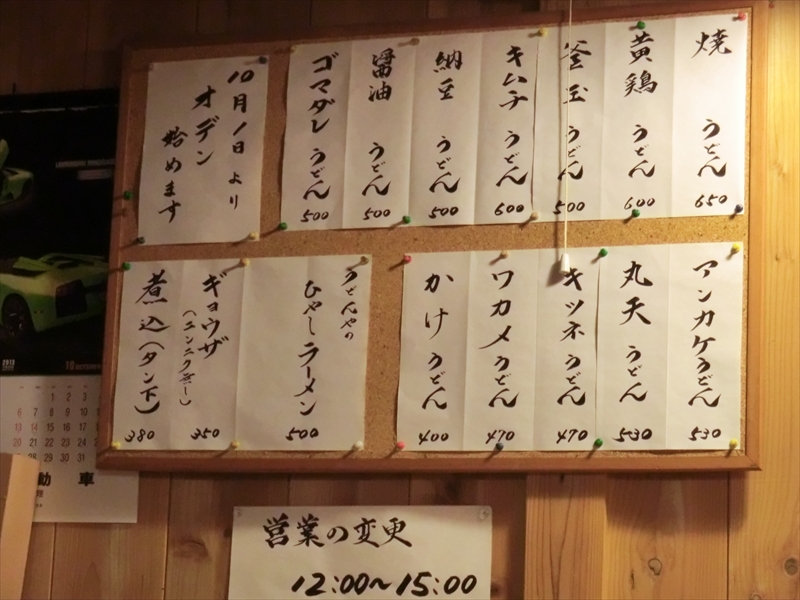 焼 うどん 650
黄鶏 うどん 600
釜玉 うどん 500
キムチ うどん 600
納豆 うどん 500
醤油 うどん 500
ゴマダレ うどん 500
10月1日 より
オデン
始めます
アンカケうどん 530
丸天 うどん 530
キツネうどん 470
ワカメうどん 470
かけ うどん 400
うどんやの
ひやしラーメン 500
ギョウザ
(ニンニク無し) 350
煮込(タン下) 380
営業の変更
12:00~15:00
2013
10.OCTOBER
1 2 3
6 7 8 9 10
13 14 15 16 17
20 21 22 23 24
28 29 30 31
動 車